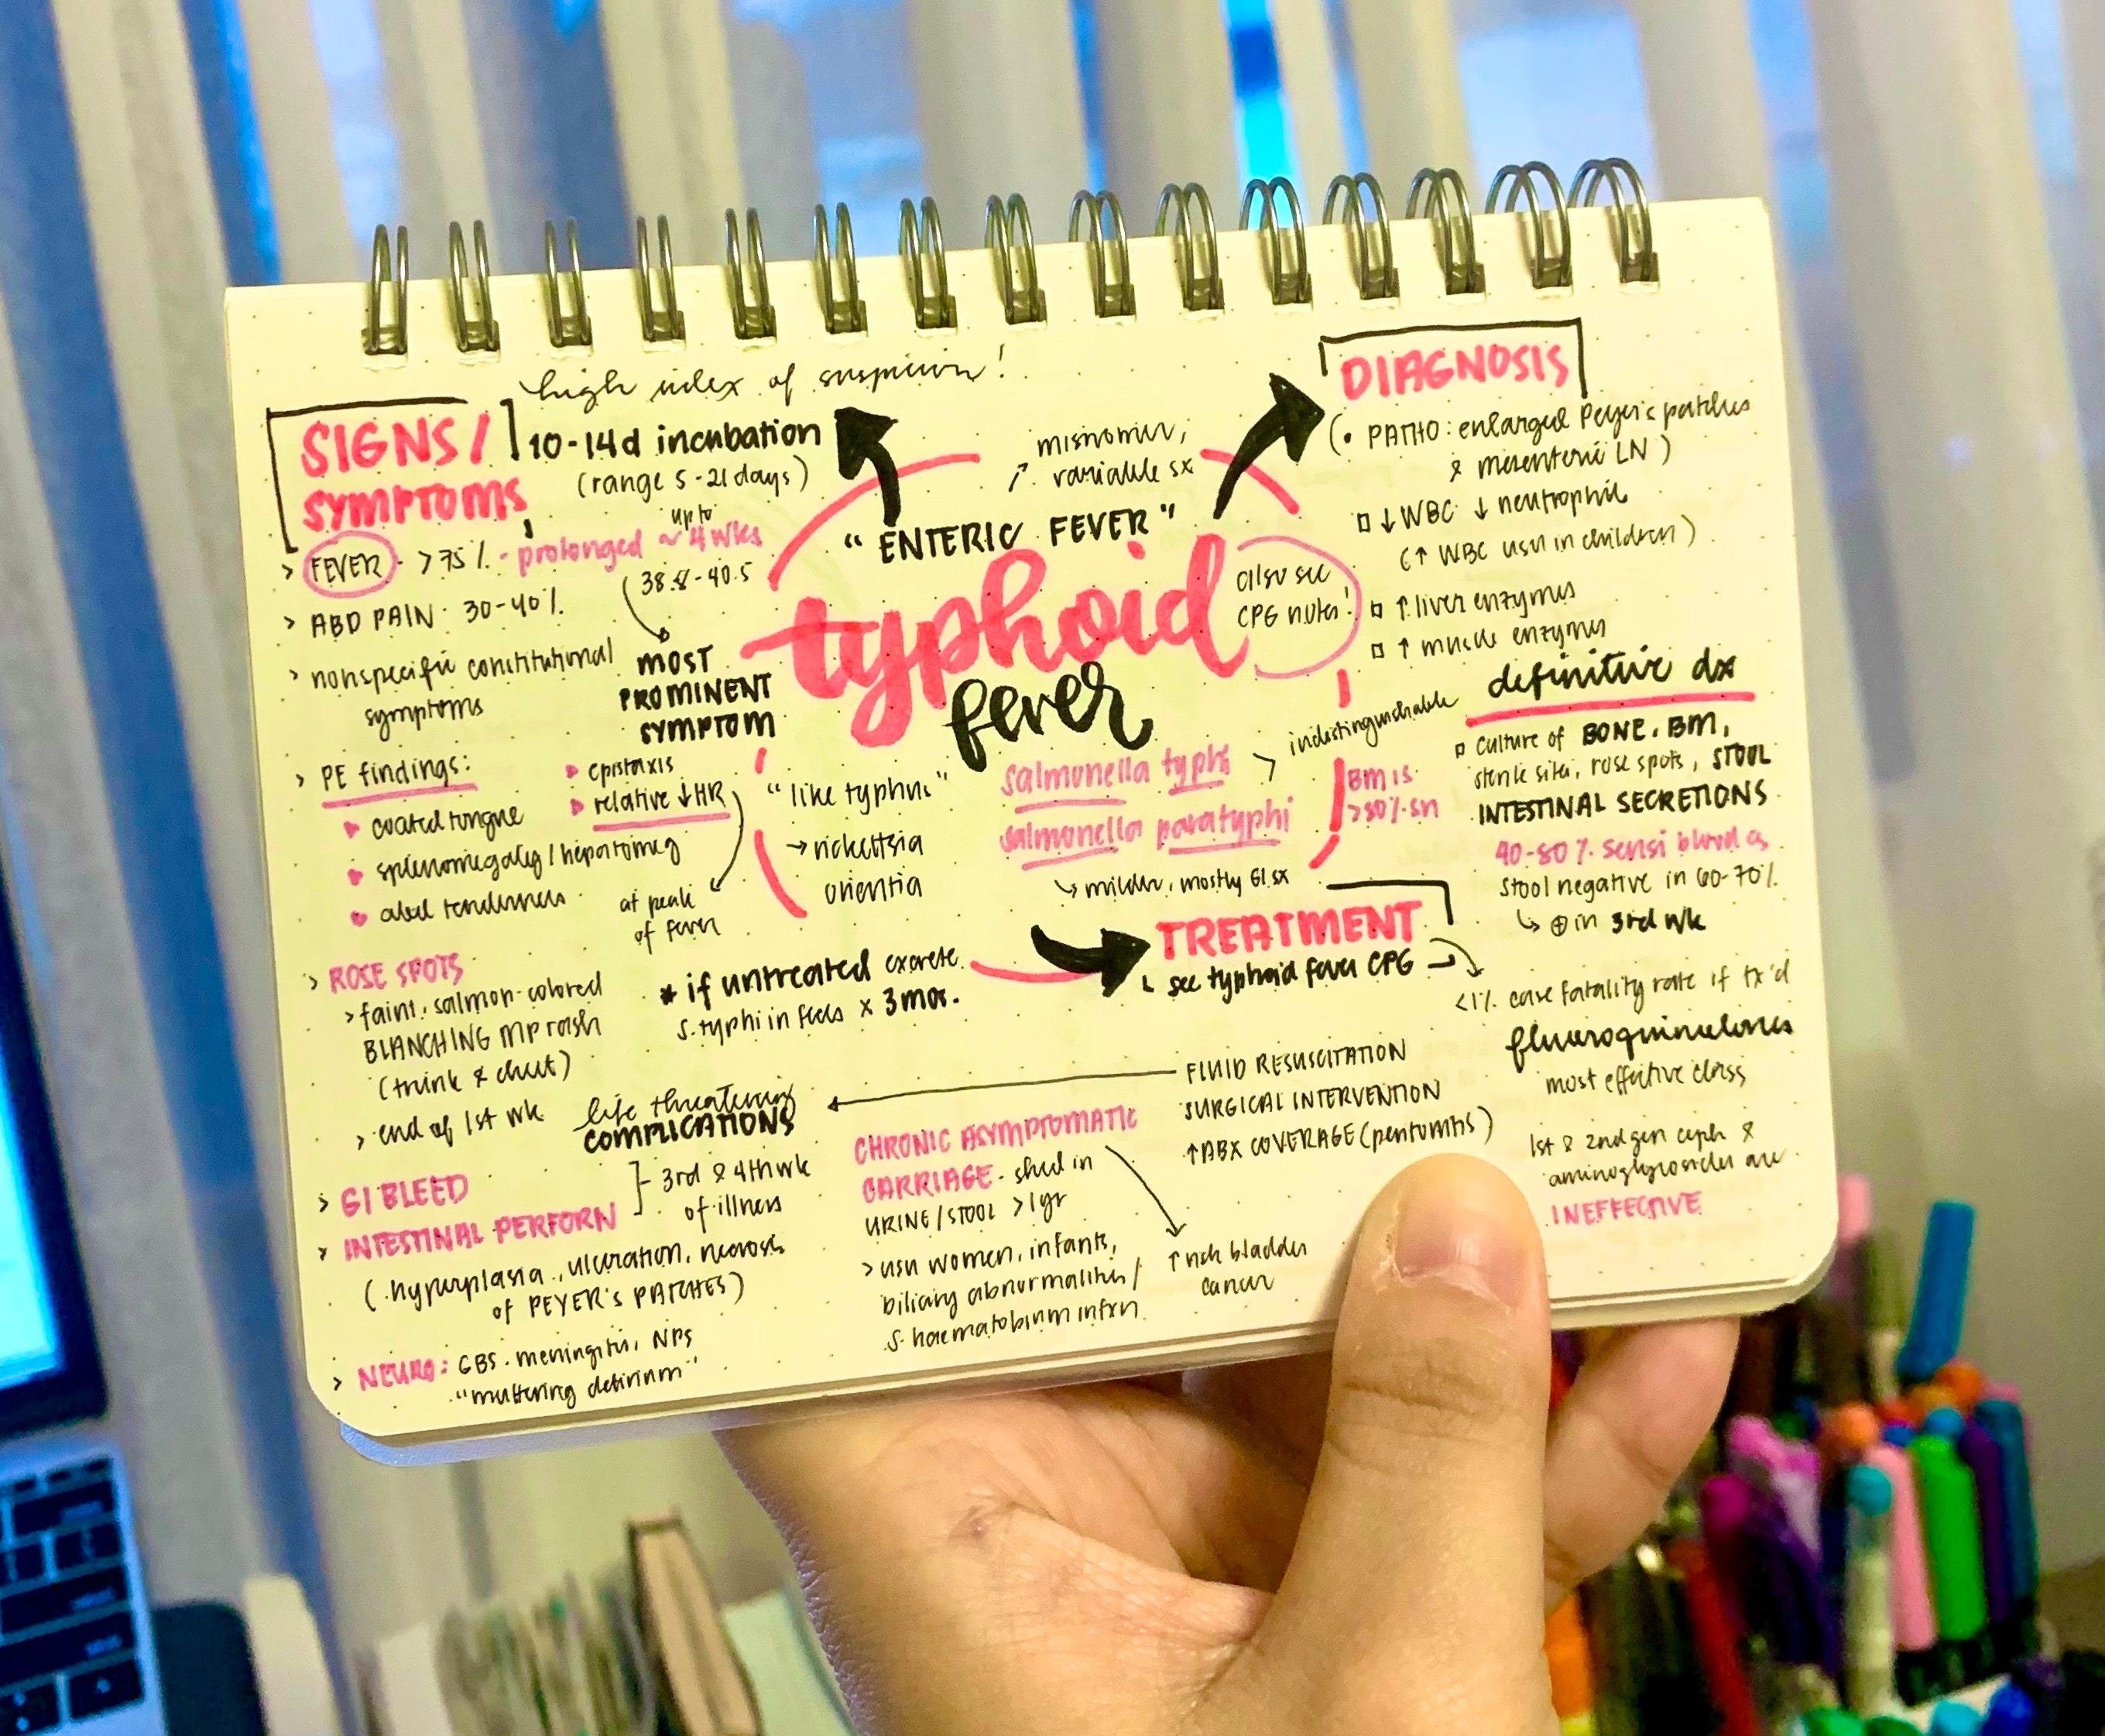 high index of suspicion!
SIGNS/
SYMPTOMS
10-14d incubation
(range 5-21 days)
> FEVER - >75% - prolonged up to ~4wks
38.8-40.5
MOST
PROMINENT
SYMPTOM
> ABD PAIN: 30-40%
> nonspecific constitutional
symptoms
> PE findings:
coated tongue
splenomegaly/hepatomeg
abd tenderness
epistaxis
relative ↓HR
at peak
of fever
> ROSE SPOTS
> faint, salmon-colored
BLANCHING MP rash
(trunk & chest)
> end of 1st wk
life threatening
COMPLICATIONS
> GI BLEED
> INTESTINAL PERFORN
3rd & 4th wk
of illness
(hyperplasia, ulceration, necrosis
of PEYER's PATCHES)
> NEURO: GBS, meningitis, NPS
"muttering delirium"
misnomer,
↗ variable sx
"ENTERIC FEVER"
typhoid
fever
also see
CPG notes!
"like typhus"
→ rickettsia
orientia
salmonella typhi
salmonella paratyphi
> indistinguishable
↳ milder, mostly GI sx
* if untreated excrete
S. typhi in feces x 3mos.
DIAGNOSIS
(• PATHO: enlarged Peyer's patches
& mesenteric LN)
↓WBC ↓neutrophil
(↑ WBC usu in children)
↑ liver enzymes
↑ muscle enzymes
definitive dx
culture of BONE, BM,
sterile sites, rose spots, STOOL
INTESTINAL SECRETIONS
BM is
>80% sn
40-80% sensi blood cs
Stool negative in 60-70%
↳ ⊕ in 3rd wk
TREATMENT
↳ see typhoid fever CPG
<1% case fatality rate if tx'd
fluoroquinolones
most effective class
1st & 2nd gen ceph &
aminoglycosides are
INEFFECTIVE
FLUID RESUSCITATION
SURGICAL INTERVENTION
↑ABX COVERAGE (peritonitis)
CHRONIC ASYMPTOMATIC
CARRIAGE - shed in
URINE/STOOL >1yr
> usu women, infants,
biliary abnormalities/
S. haematobium infxn
↑ risk bladder
cancer